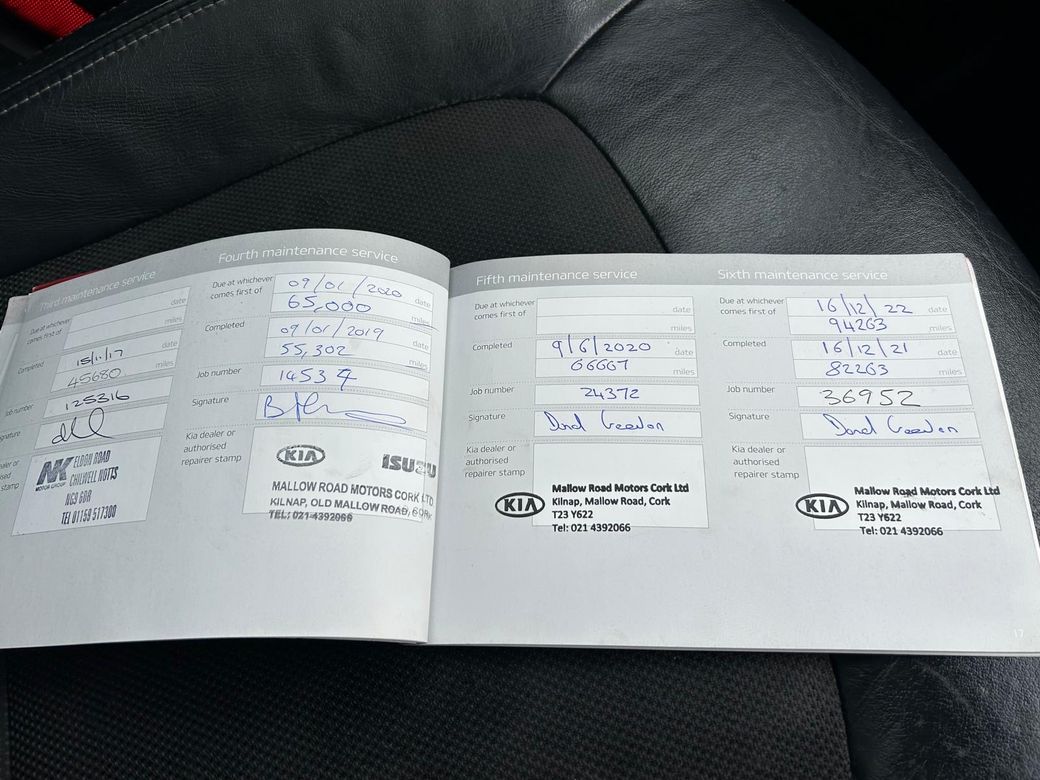 Third maintenance service
Due at whichever comes first of
date
miles
Completed
15/11/17 date
45680 miles
Job number
125316
Signature
dealer or
stamp
NK
MOTOR GROUP
ELDON ROAD
CHILWELL NOTTS
NG9 6DR
TEL 01159 517300
Fourth maintenance service
Due at whichever comes first of
09/01/2020 date
65,000 miles
Completed
09/01/2019 date
55,302 miles
Job number
14534
Signature
Kia dealer or authorised repairer stamp
KIA ISUZU
MALLOW ROAD MOTORS CORK LTD
KILNAP, OLD MALLOW ROAD, CORK
TEL: 021-4392066
Fifth maintenance service
Due at whichever comes first of
date
miles
Completed
9/6/2020 date
66667 miles
Job number
24372
Signature
Kia dealer or authorised repairer stamp
KIA
Mallow Road Motors Cork Ltd
Kilnap, Mallow Road, Cork
T23 Y622
Tel: 021 4392066
Sixth maintenance service
Due at whichever comes first of
16/12/22 date
94263 miles
Completed
16/12/21 date
82263 miles
Job number
36952
Signature
Kia dealer or authorised repairer stamp
KIA
Mallow Road Motors Cork Ltd
Kilnap, Mallow Road, Cork
T23 Y622
Tel: 021 4392066
17